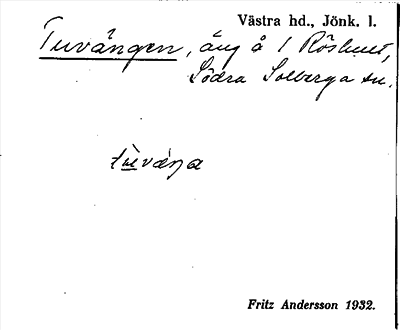 Västra hd., Jönk. l.
Tuvängen, äng å 1 Röslund,
Södra Solberga sn.
tùváŋa
Fritz Andersson 1932.